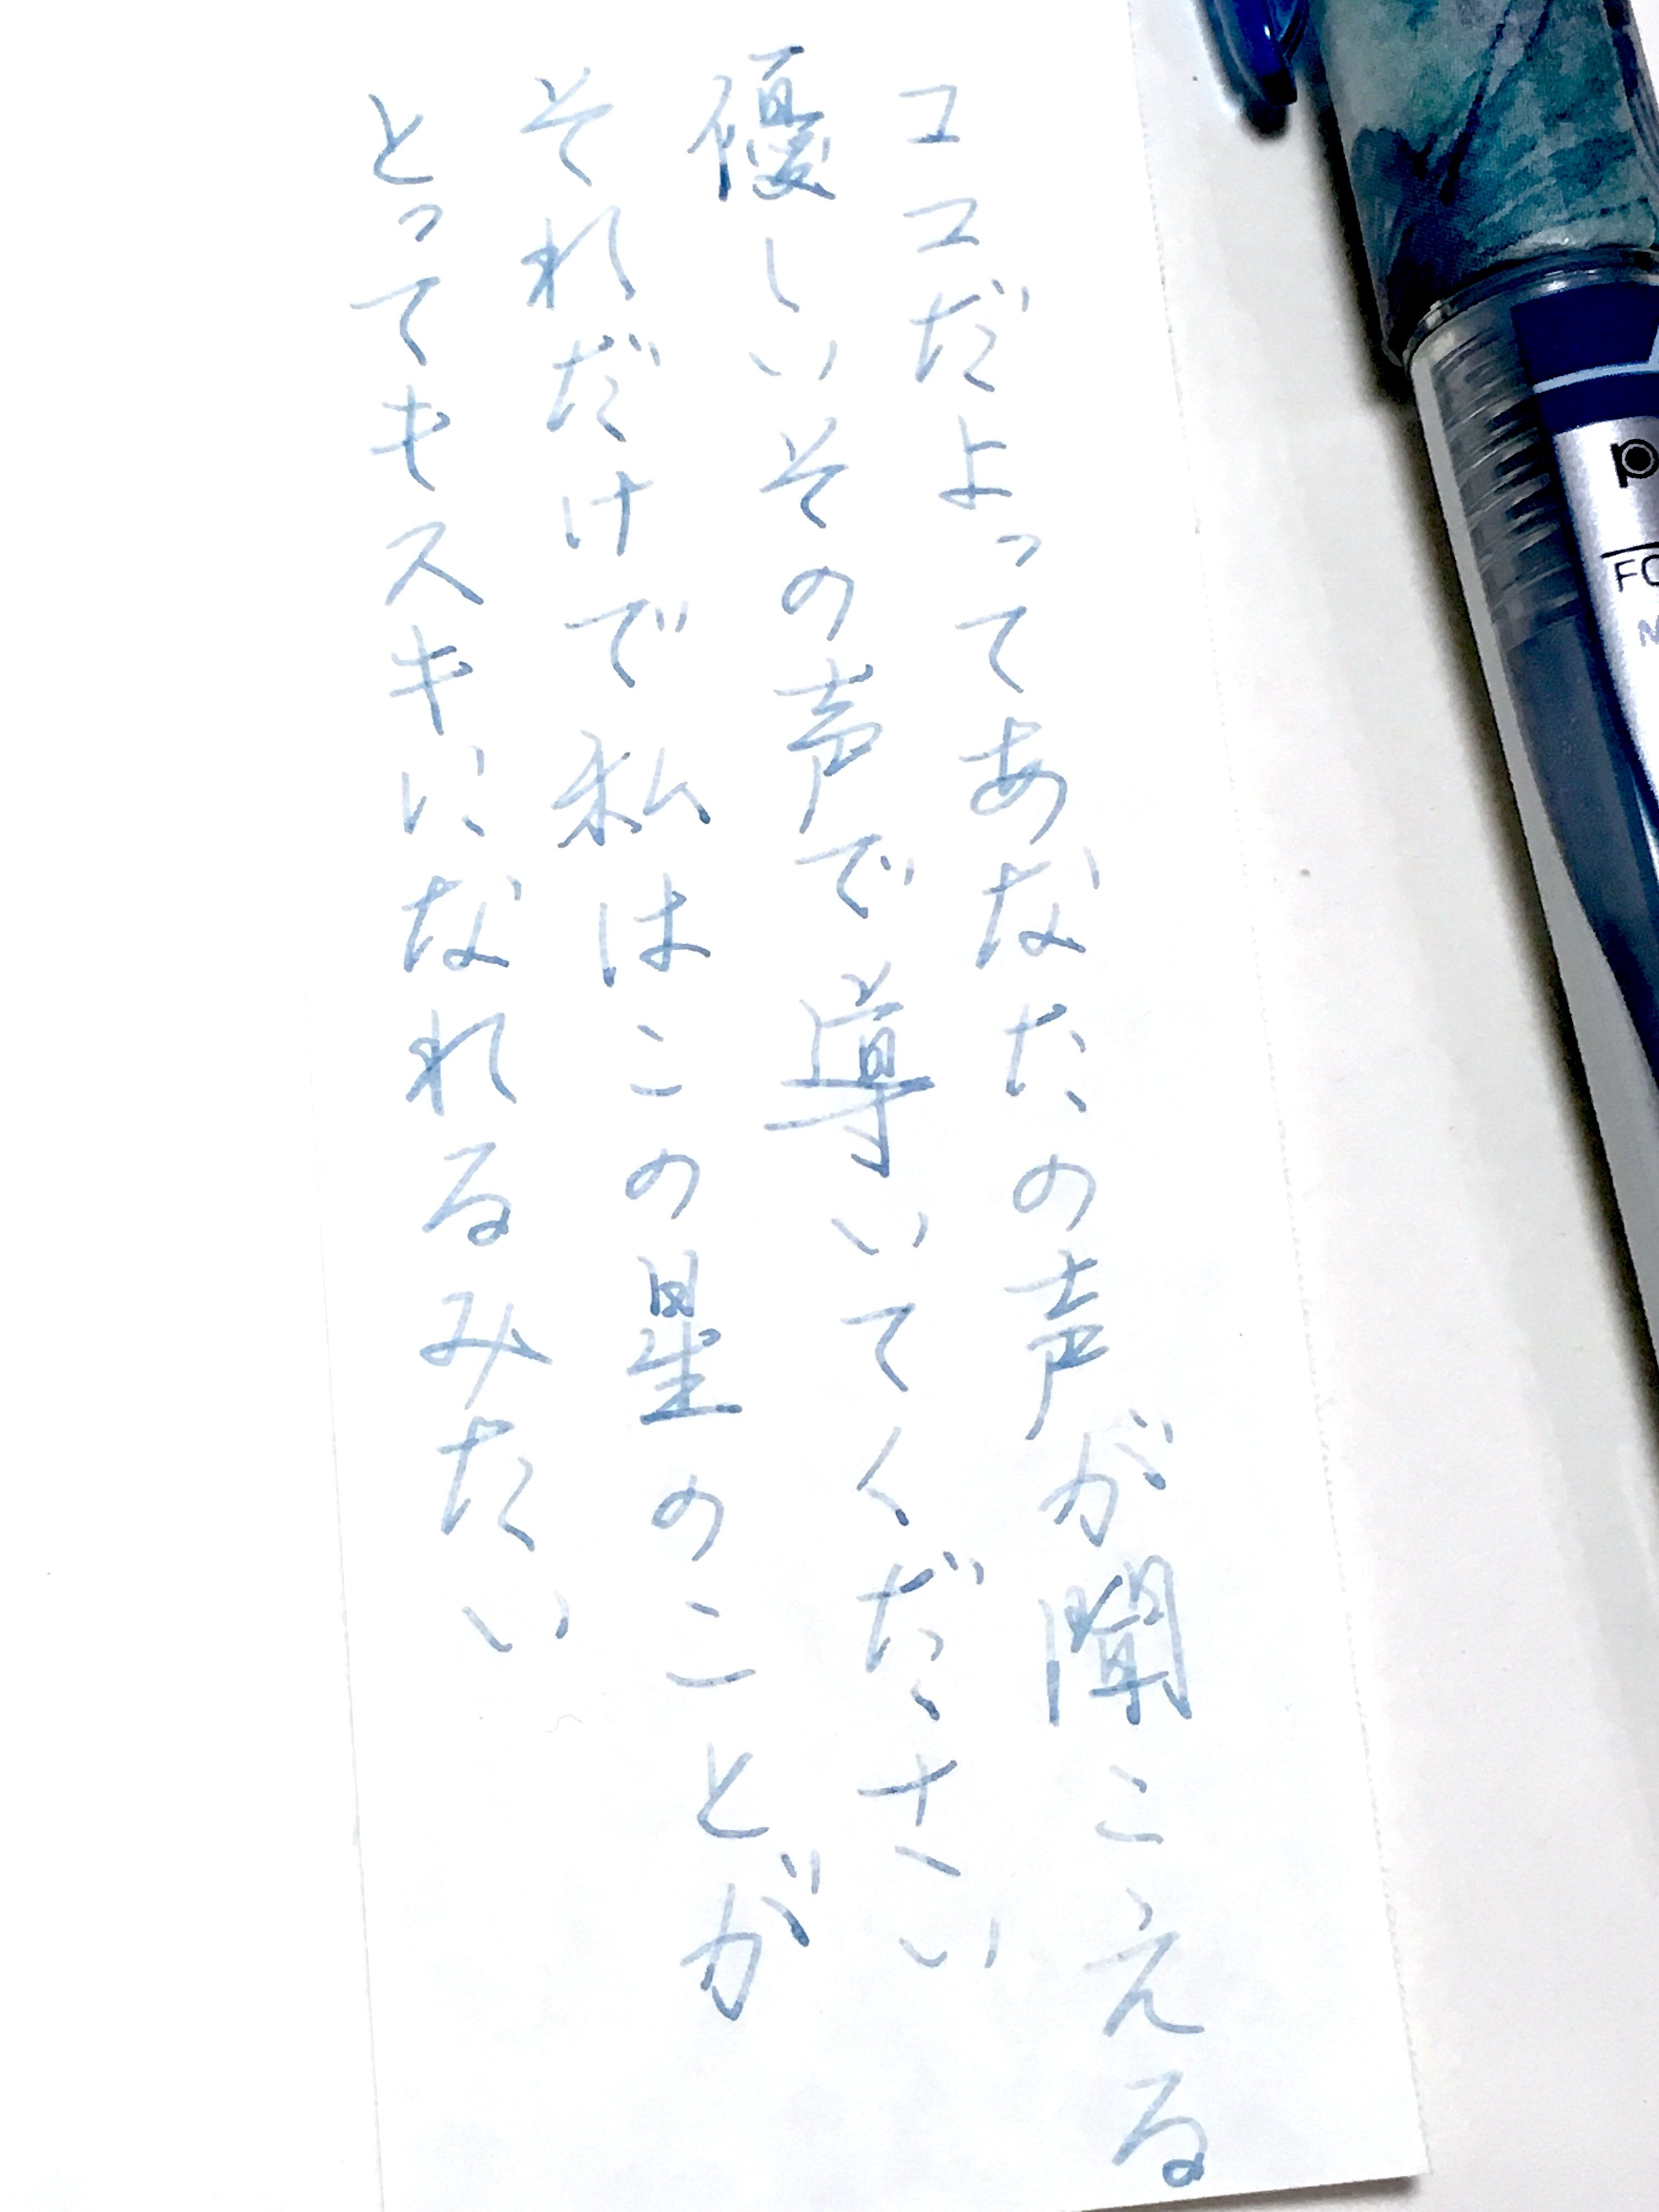 ココだよってあなたの声が聞こえる
優しいその声で導いてください
それだけで私はこの星のことが
とってもスキになれるみたい